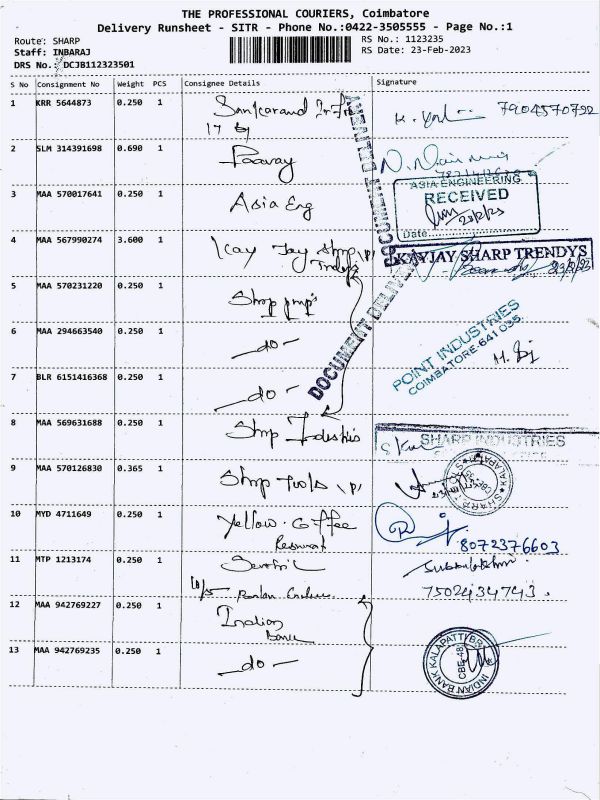 THE PROFESSIONAL COURIERS, Coimbatore
Delivery Runsheet - SITR - Phone No.:0422-3505555 - Page No.:1
Route: SHARP
RS No.: 1123235
Staff: INBARAJ
RS Date: 23-Feb-2023
DRS No.: DCJB112323501
S No Consignment No Weight PCS Consignee Details Signature
1 KRR 5644873 0.250 1
7904570792
2 SLM 314391698 0.690 1 Paavay
3 MAA 570017641 0.250 1 Asia Eng
ASIA ENGINEERING
RECEIVED
Date
4 MAA 567990274 3.600 1 Kay Jay Shrp (P)
Trendys
KAYJAY SHARP TRENDYS
DOCUMENT DELIVERY
5 MAA 570231220 0.250 1 Shrp pmp's
6 MAA 294663540 0.250 1 - do -
POINT INDUSTRIES
COIMBATORE-641 035.
7 BLR 6151416368 0.250 1 - do -
DOCUMENT DELIVERY
8 MAA 569631688 0.250 1 Shrp
SHARP INDUSTRIES
9 MAA 570126830 0.365 1 Shrp Tools (P)
10 MYD 4711649 0.250 1 Yellow Coffee
8072376603
11 MTP 1213174 0.250 1
7502434743
12 MAA 942769227 0.250 1 Indian
Bank
13 MAA 942769235 0.250 1 - do -
INDIAN BANK KALAPATTI BR